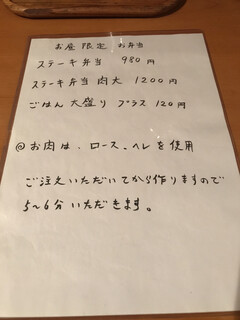 お昼限定 お弁当
ステーキ弁当 980円
ステーキ弁当 肉大 1200円
ごはん 大盛り プラス 120円
@お肉は、ロース、ヘレを使用
ご注文いただいてから作りますので
5〜6分 いただきます。